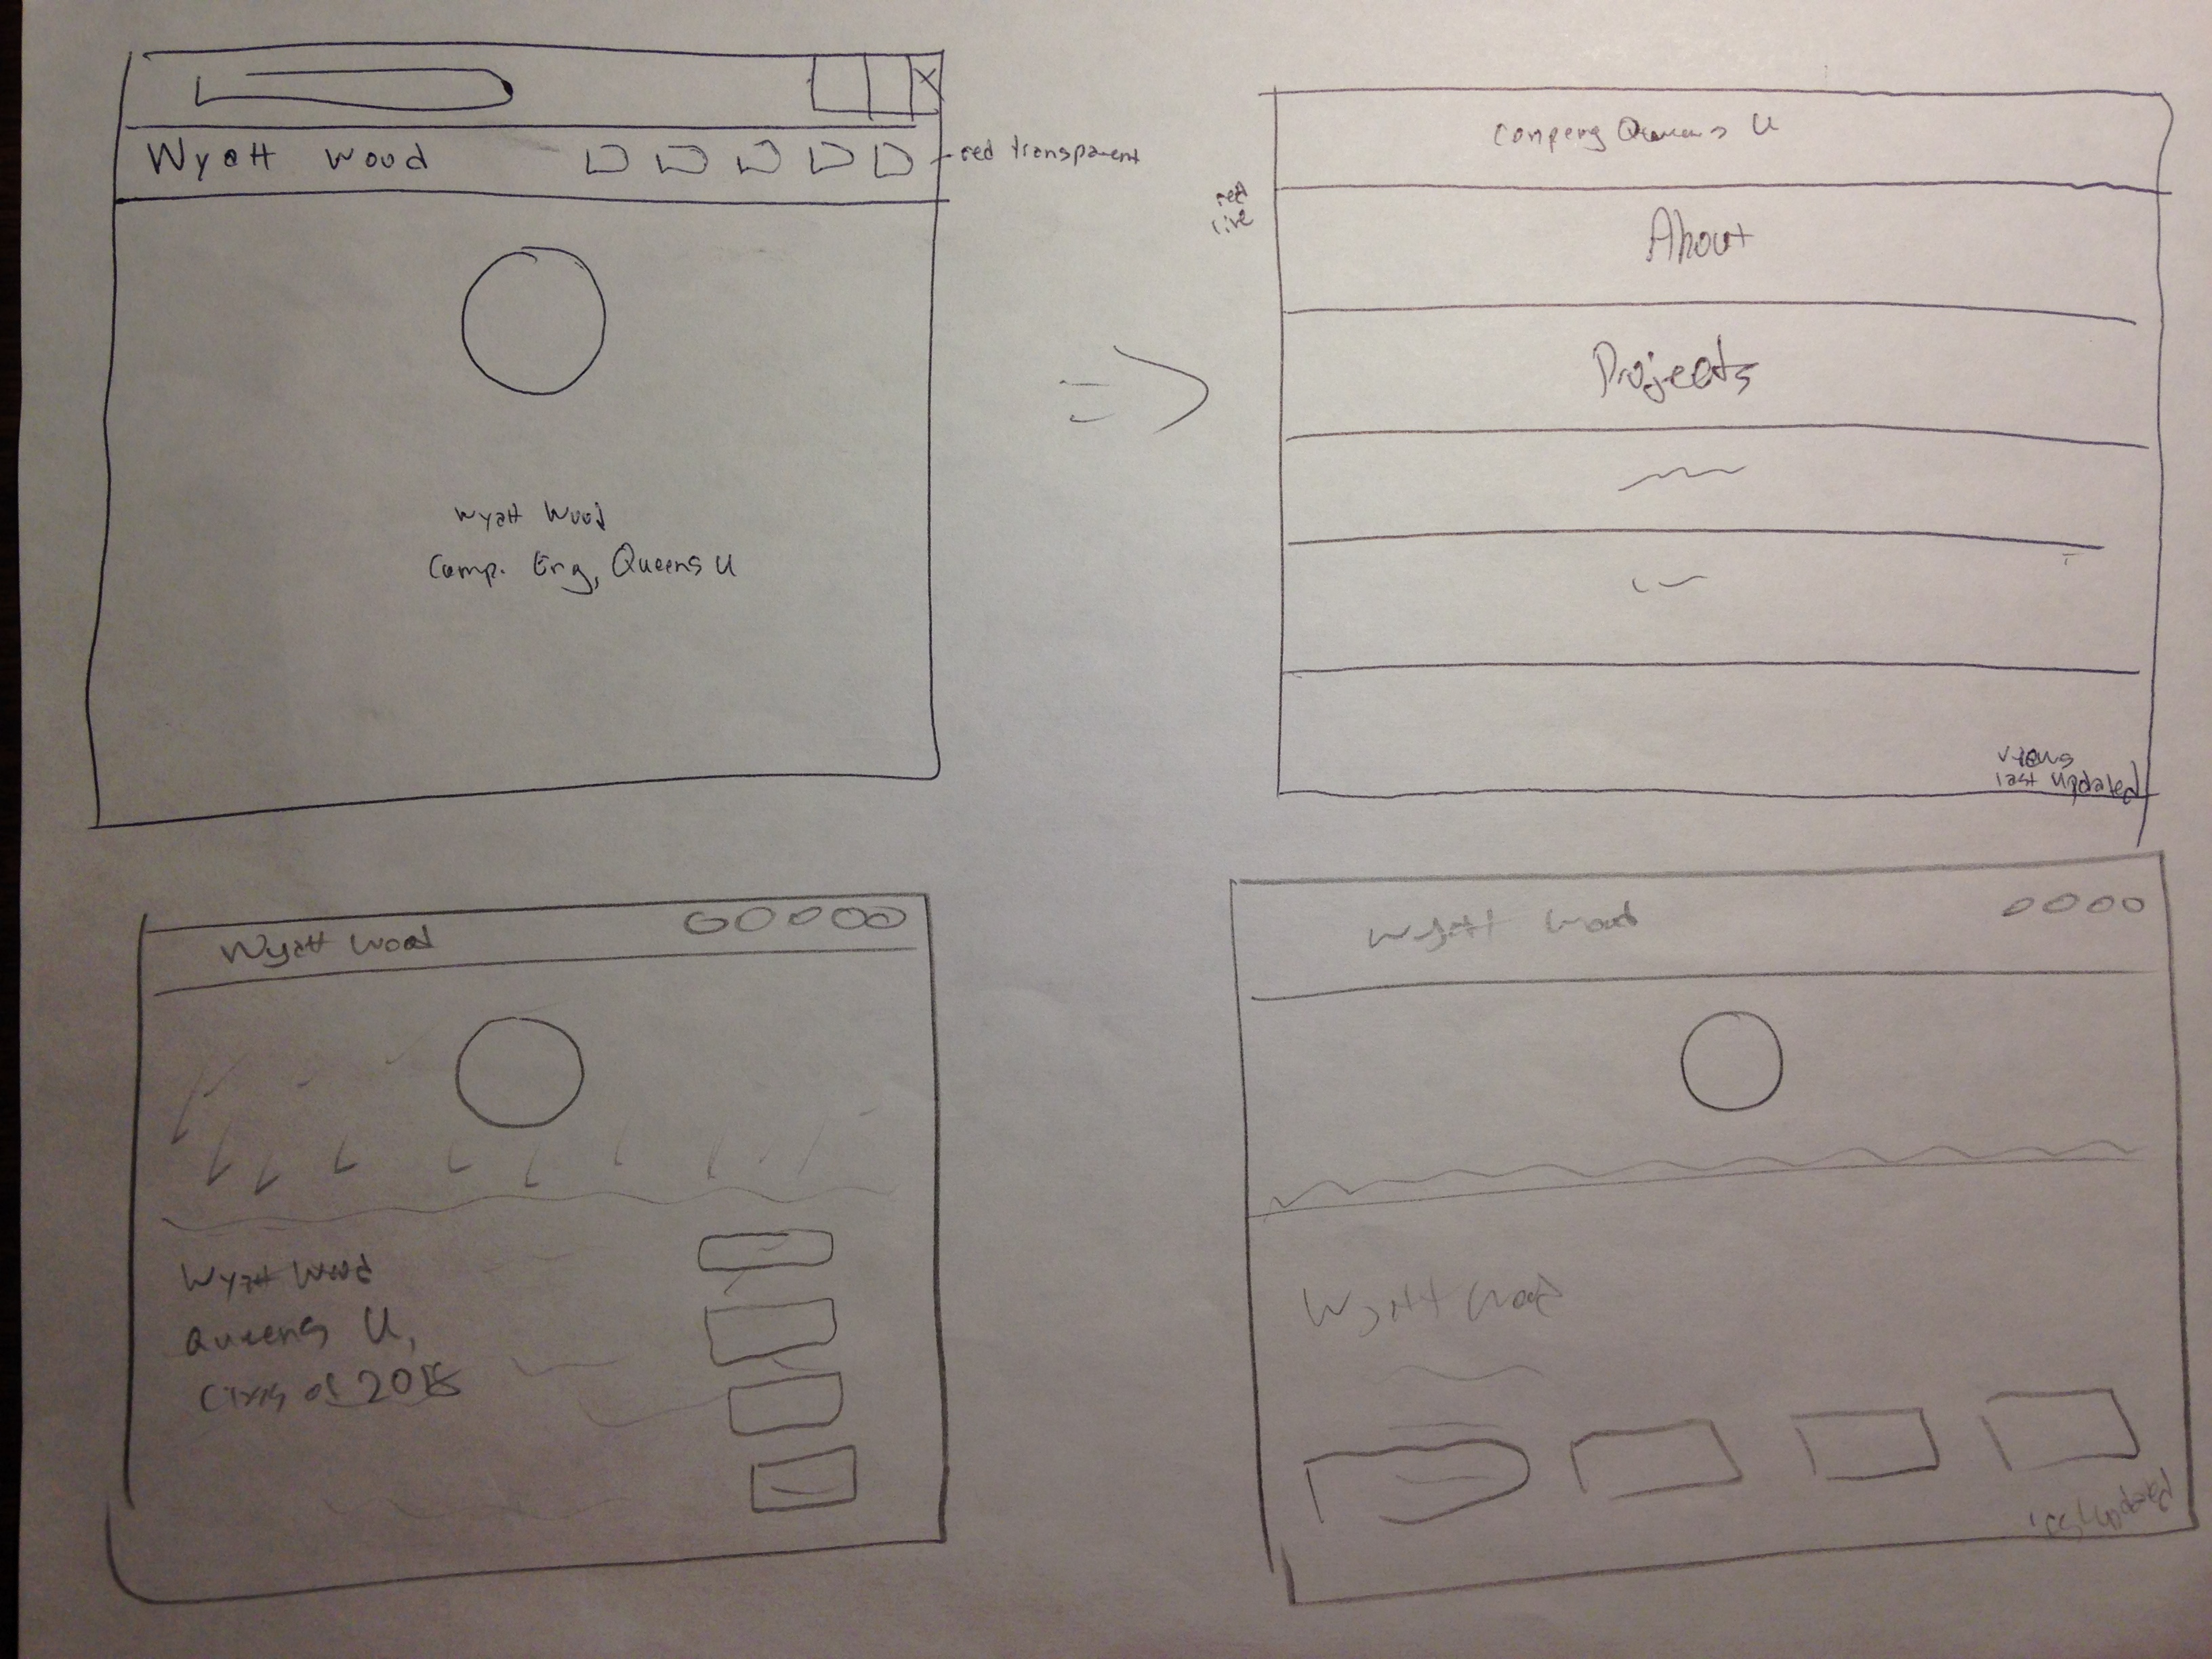 Wyatt Wood
red transparent
Wyatt Wood
Comp. Eng, Queens U
Compeng Queens U
red
About
Projects
views
last updated
Wyatt Wood
Wyatt Wood
Queens U,
Class of 2018
Wyatt Wood
Wyatt Wood
last updated